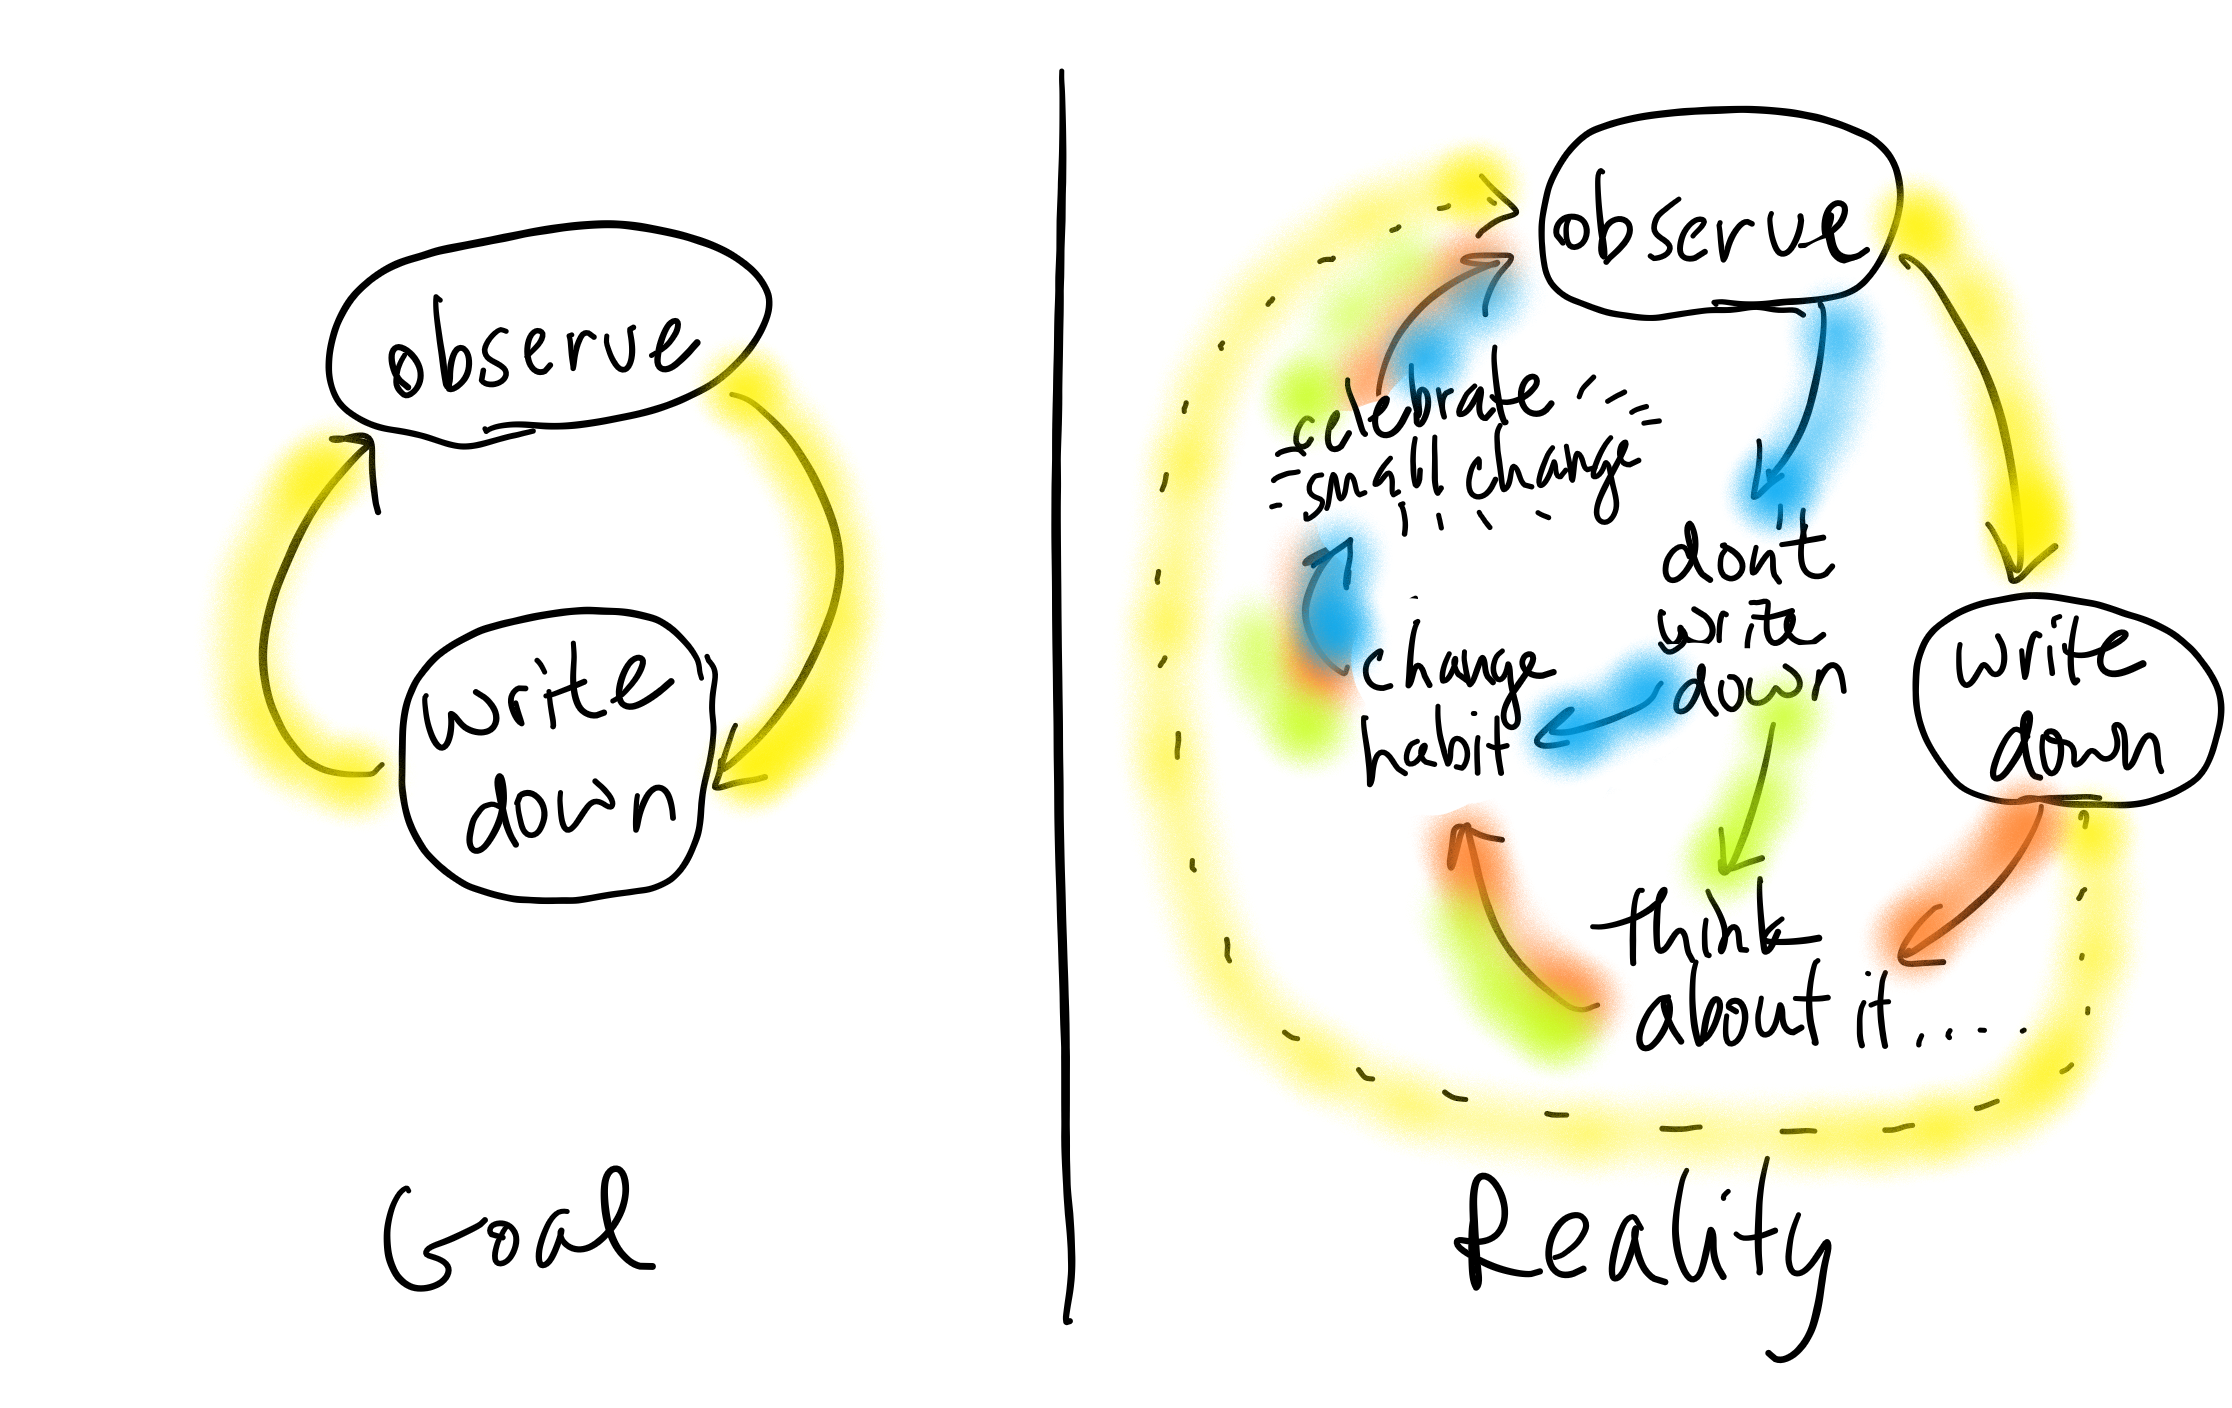 observe
write
down
Goal
observe
celebrate
small change
don't
write
down
change
habit
write
down
think
about it.....
Reality